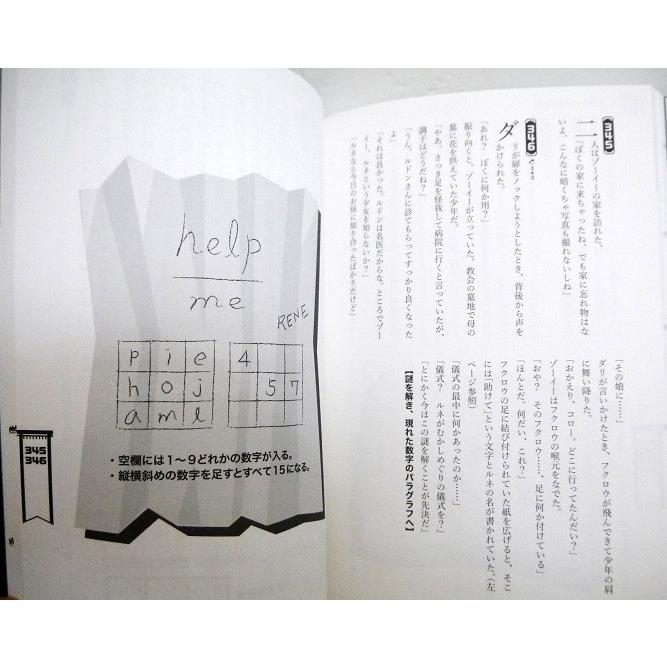 345
二人はゾーイーの家を訪れた。
「ぼくの家に来ちゃったね。でも家に忘れ物はな
いよ。こんなに暗くちゃ写真も撮れないしね」
346 343
ダリが扉をノックしようとしたとき、背後から声を
かけられた。
「あれ？　ぼくに何か用？」
振り向くと、ゾーイーが立っていた。教会の墓地で母の
墓に花を供えていた少年だ。
「やあ、さっき足を怪我して病院に行くと言っていたが、
調子はどうだね？」
「うん。ルドンさんに診てもらってすっかり良くなった
よ」
「それは良かった。ルドンは名医だからな。ところでゾー
イー、ルネという少女を知らないか？」
「ルネなら今日のお昼に知り合ったばかりだけど」
「その娘に……」
ダリが言いかけたとき、フクロウが飛んできて少年の肩
に舞い降りた。
「おかえり、コロー。どこに行ってたんだい？」
ゾーイーはフクロウの喉元をなでた。
「おや？　そのフクロウ……、足に何か付けている」
「ほんとだ。何だい、これ？」
フクロウの足に結び付けられていた紙を広げると、そこ
には「助けて」という文字とルネの名が書かれていた。（左
ページ参照）
「儀式の最中に何かあったのか……」
「儀式？　ルネがむかしめぐりの儀式を？」
「とにかく今はこの謎を解くことが先決だ」
【謎を解き、現れた数字のパラグラフへ】
help
me
RENE
p i e
h o j
a m l
4
5 7
・空欄には1〜9どれかの数字が入る。
・縦横斜めの数字を足すとすべて15になる。
345
346